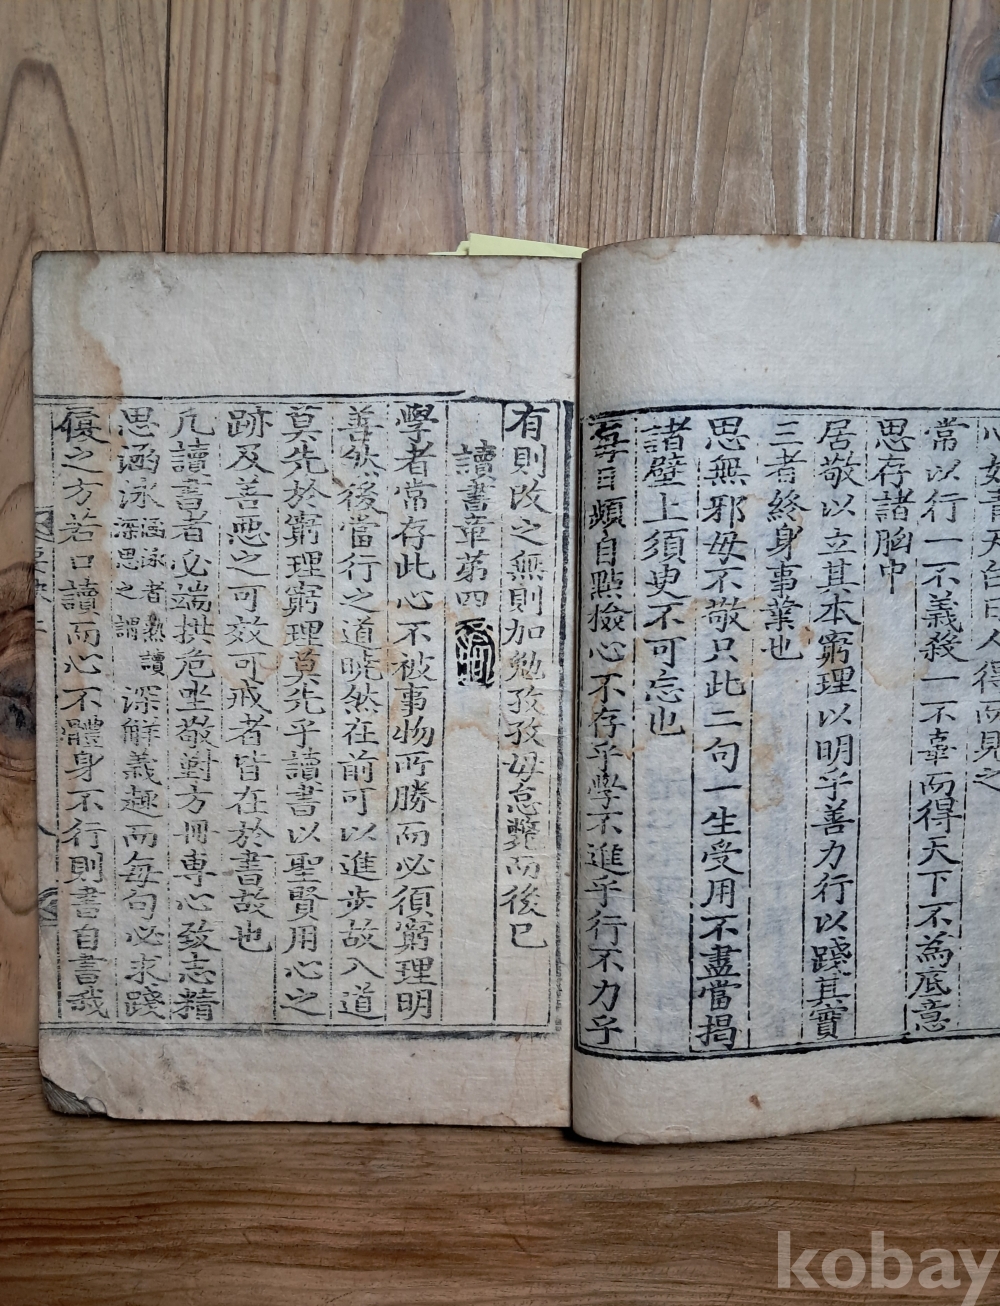 心如青天白日人得而見之
常以行一不義殺一不辜而得天下不為底意
思存諸胸中
居敬以立其本窮理以明乎善力行以踐其實
三者終身事業也
思無邪毋不敬只此二句一生受用不盡當揭
諸壁上須臾不可忘也
每日頻自點檢心不存乎學不進乎行不力乎
有則改之無則加勉孜孜毋怠斃而後已
讀書章第四
學者常存此心不被事物所勝而必須窮理明
善然後當行之道曉然在前可以進步故入道
莫先於窮理窮理莫先乎讀書以聖賢用心之
跡及善惡之可效可戒者皆在於書故也
凡讀書者必端拱危坐敬對方冊專心致志精
思涵泳涵泳者熟讀深思之謂深解義趣而每句必求踐
履之方若口讀而心不體身不行則書自書我
kobay